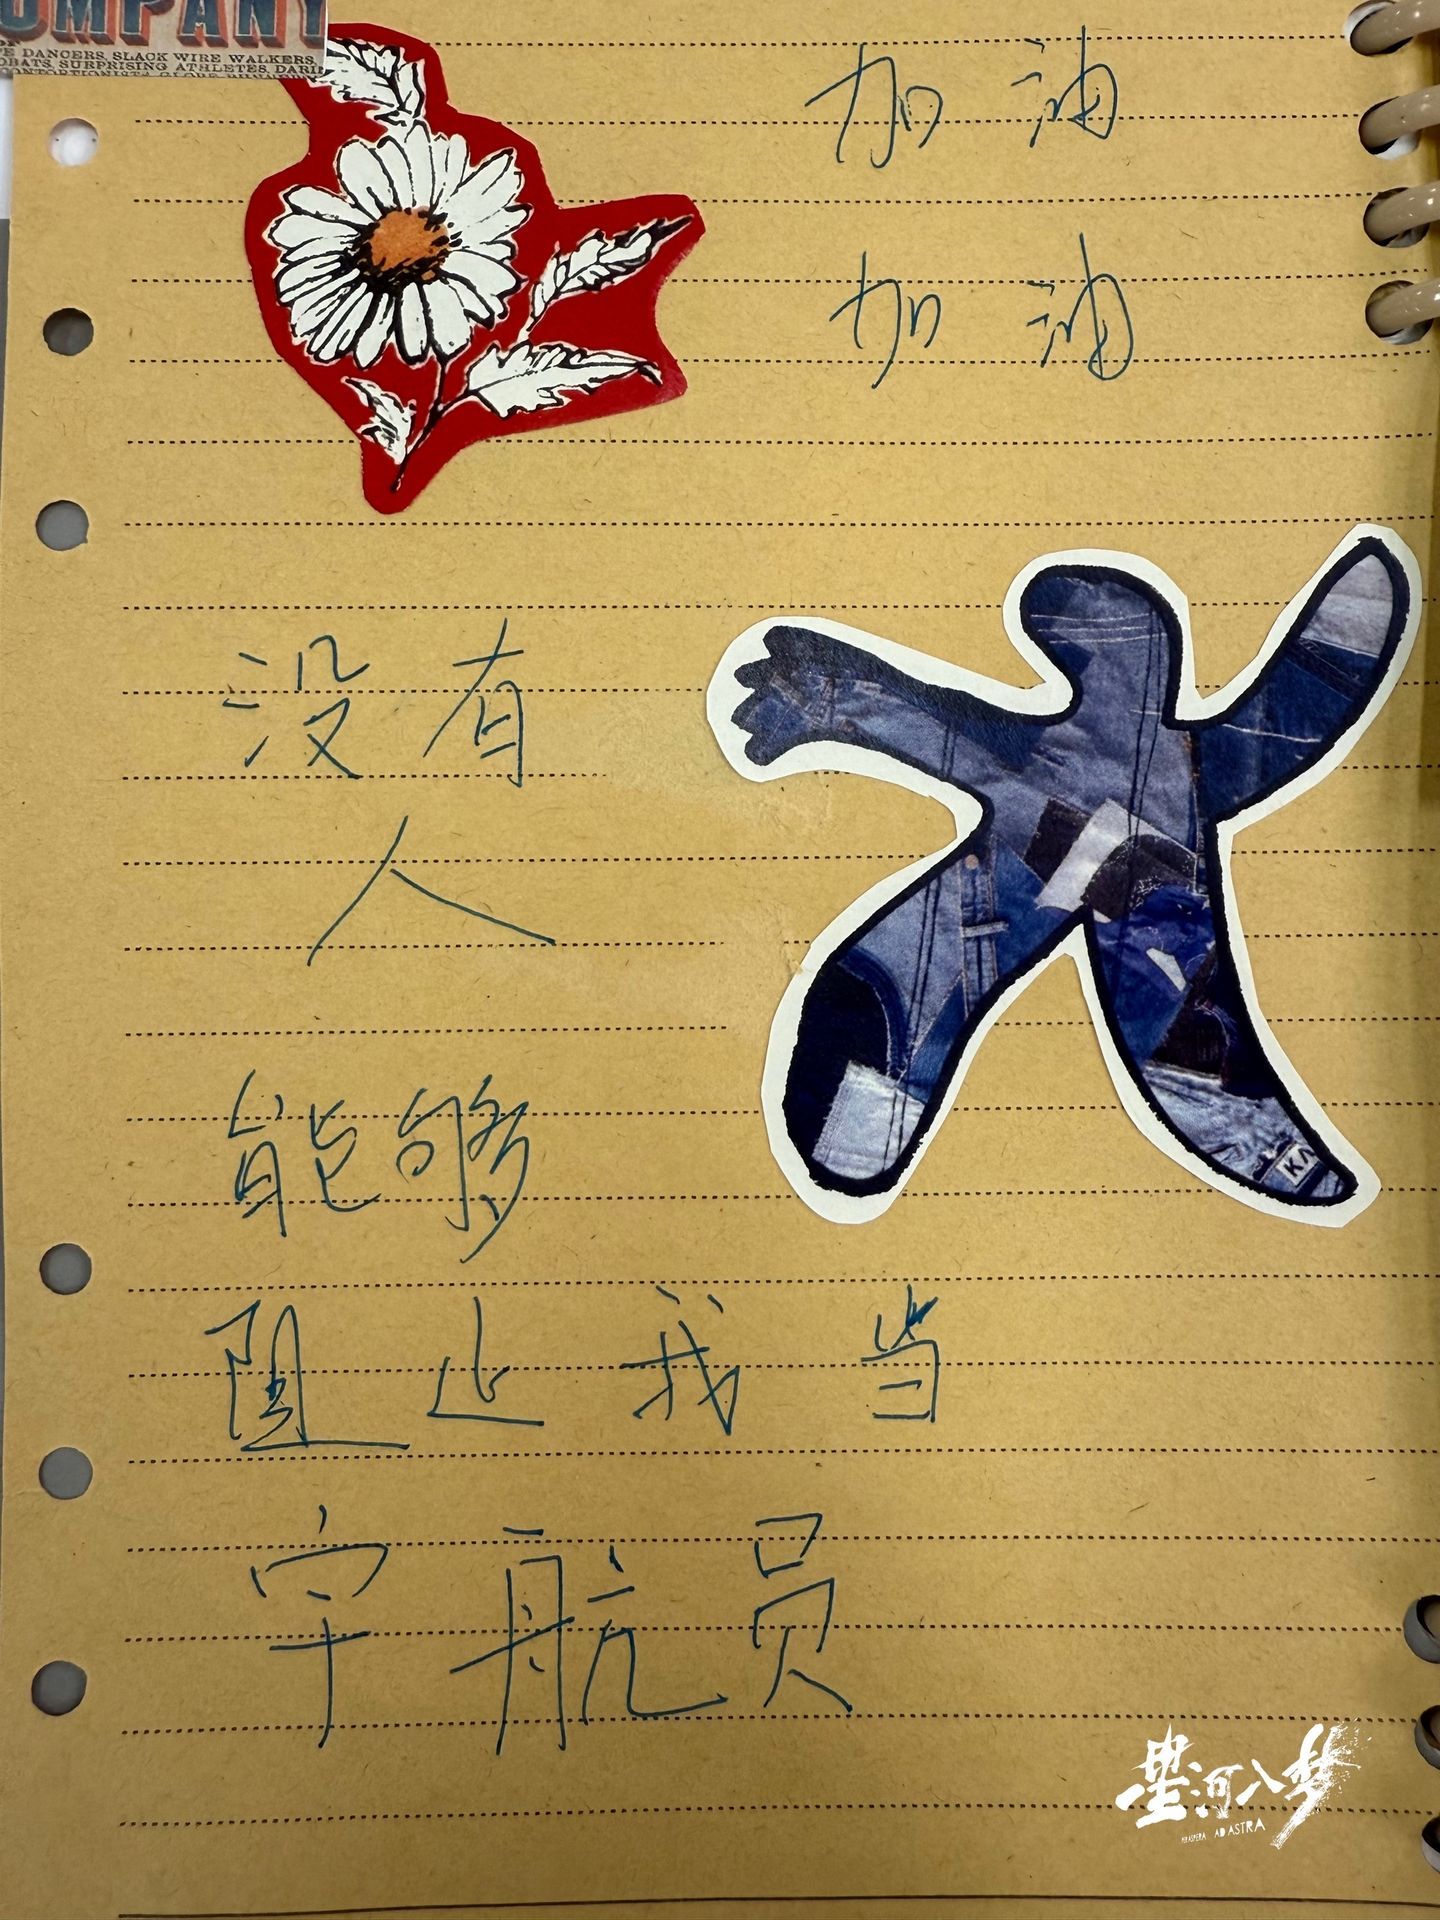 OMPANY
E DANCERS, SLACK WIRE WALKERS,
OBATS, SURPRISING ATHLETES, DARI
加油
加油
没有
人
能够
阻止我当
宇航员
KA
星河入梦
PER ASPERA AD ASTRA